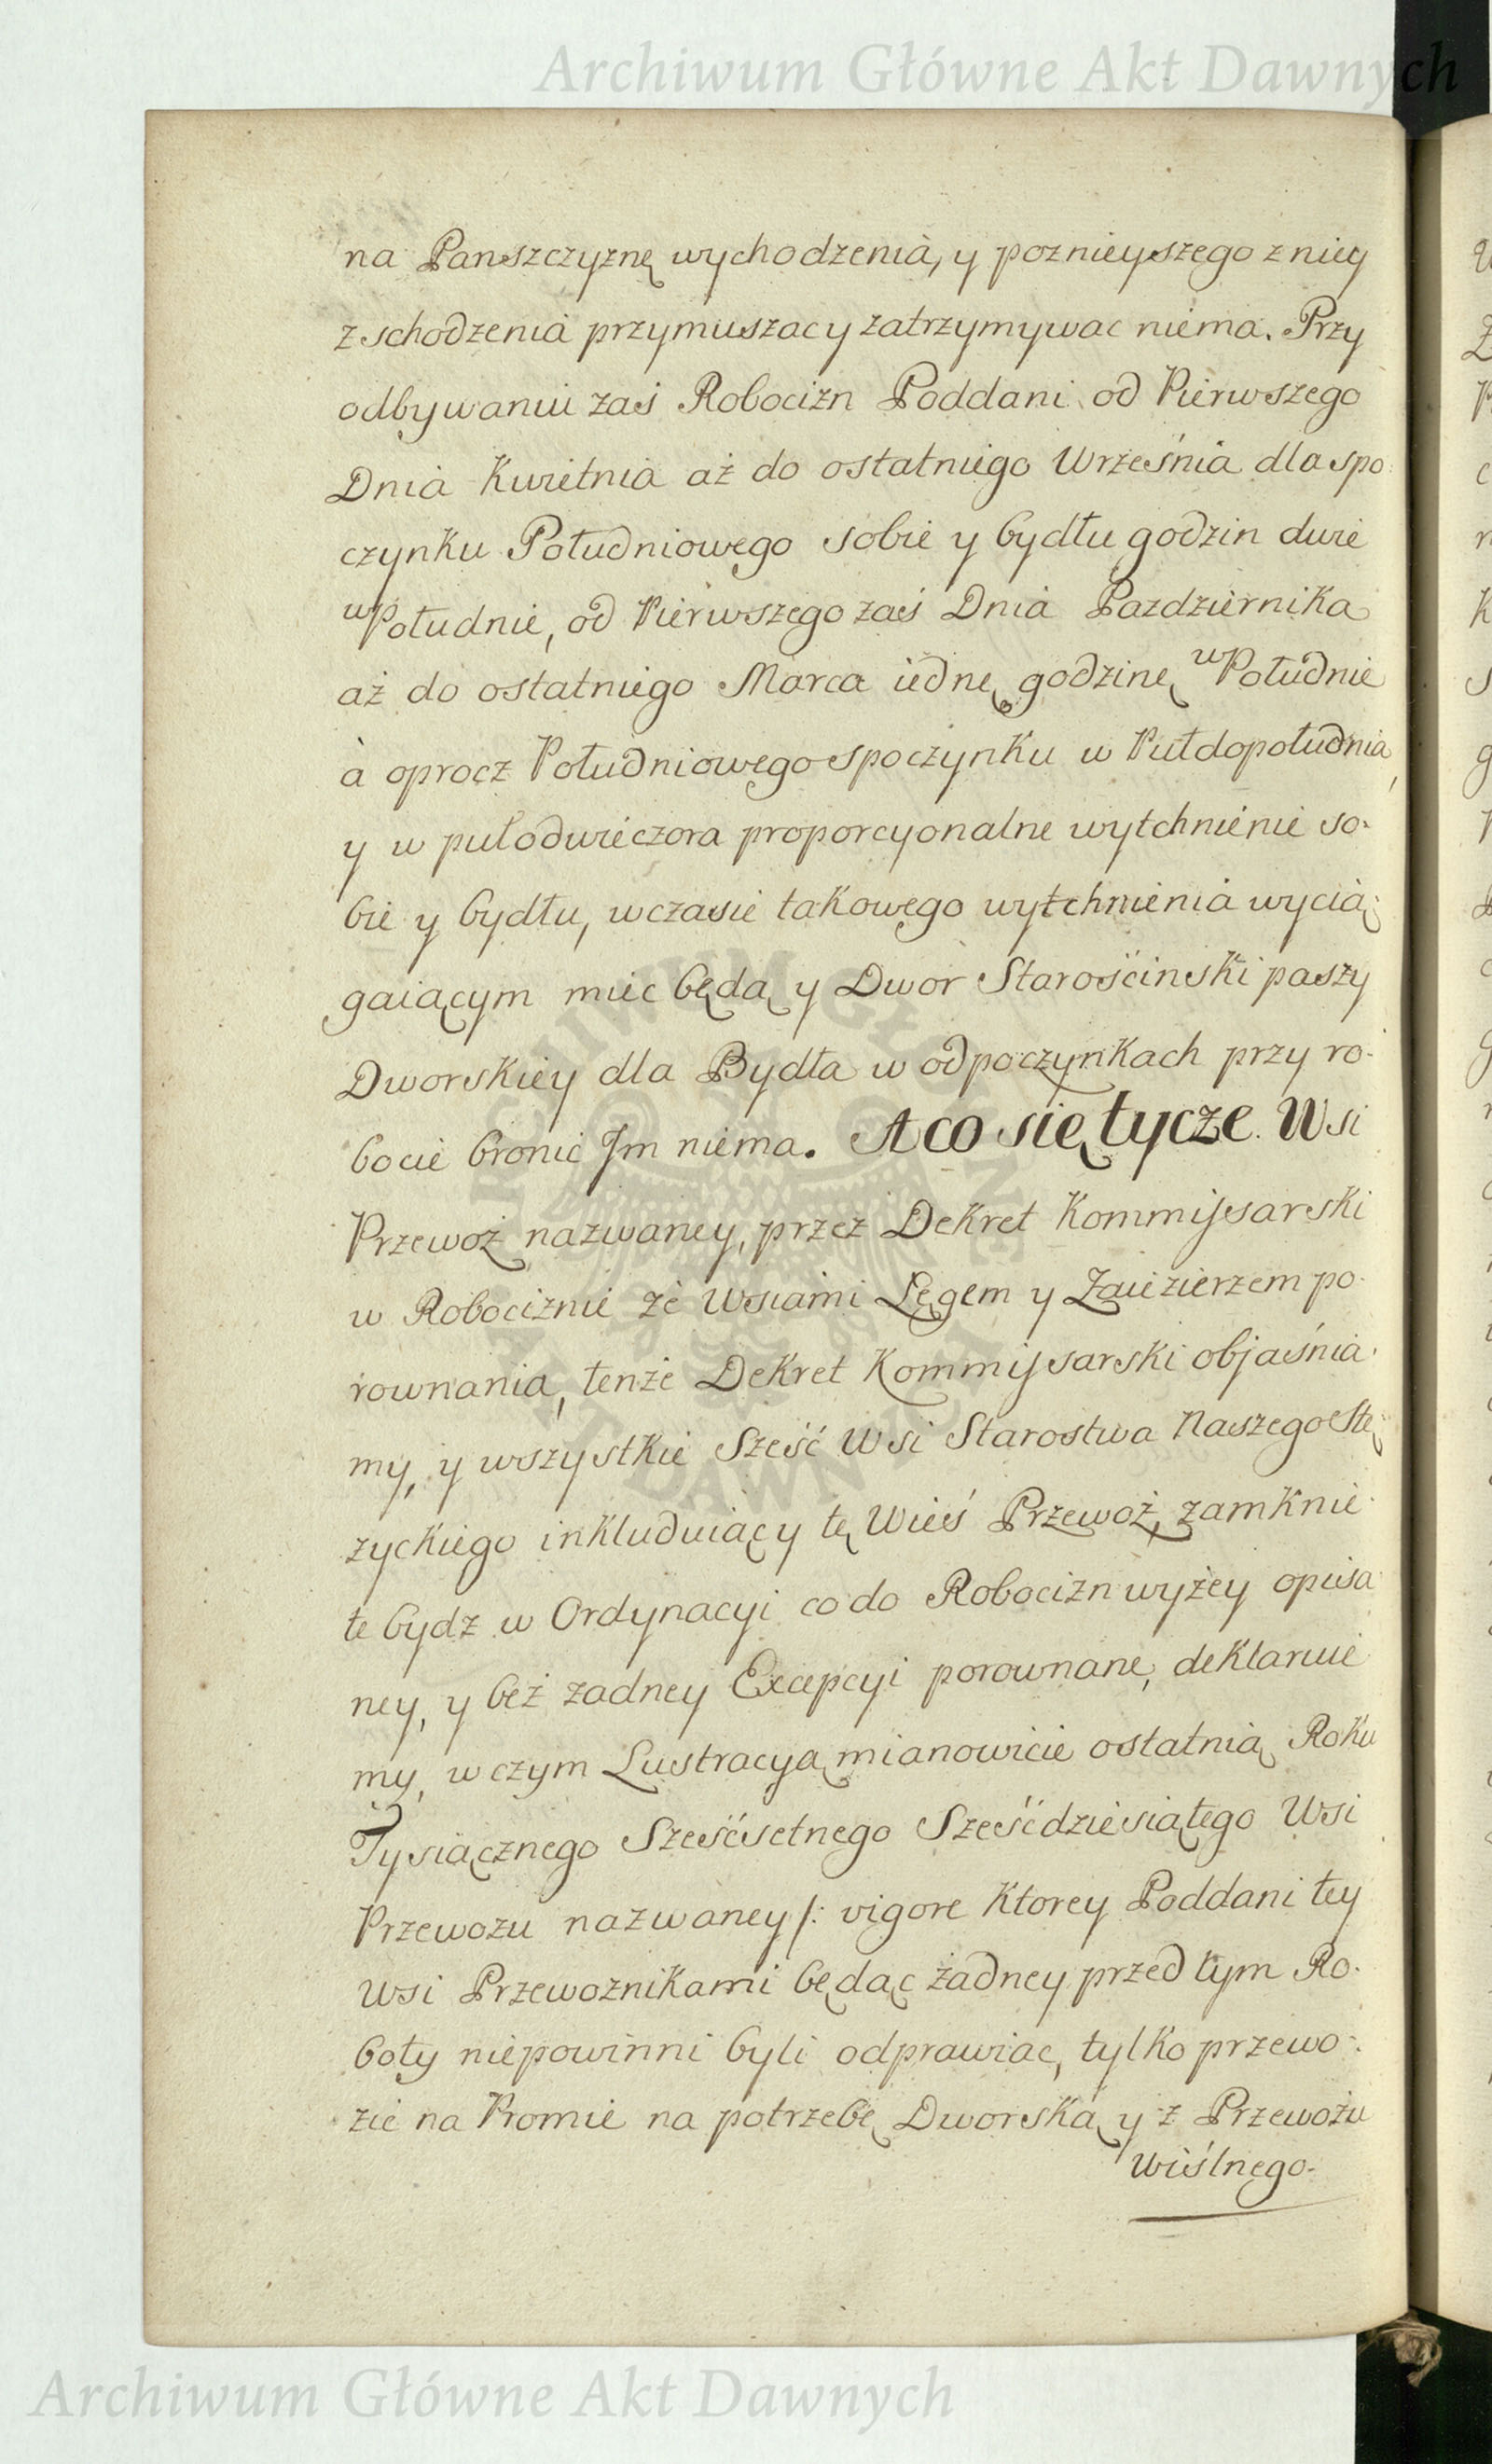 Archiwum Główne Akt Dawnych
na Panszczyznę wychodzenia, y poznieyszego z niey
z schodzenia przymuszac y zatrzymywac niema. Przy
odbywaniu zaś Robocizn Poddani od Pierwszego
Dnia Kwietnia aż do ostatniego Września dla spo:
czynku Południowego sobie y bydłu godzin dwie
w Południe, od Pierwszego zaś Dnia Pazdziernika
aż do ostatniego Marca iednę godzinę w Południe
à oprocz Południowego spoczynku w Pułdopołudnia,
y w pułodwieczora proporcyonalne wytchnienie so-
bie y bydłu, wczasie takowego wytchnienia wycią:
gaiącym miec będą y Dwor Starościnski paszy
Dworskiey dla Bydła w odpoczynkach przy ro-
bocie bronic Jm niema. A co się tycze Wsi
Przewoż nazwaney, przez Dekret Kommissarski
w Robociznie ze Wsiami Łęgem y Zaiezierzem po-
rownania, tenże Dekret Kommissarski objaśnia-
my, y wszystkie Sześć Wsi Starostwa Naszego Stę:
zyckiego inkluduiący tę Wieś Przewoż, zamknie-
te bydz w Ordynacyi co do Robocizn wyżey opisa
ney, y bez zadney Excepcyi porownane, deklaruie
my, w czym Lustracyą mianowicie ostatnią Roku
Tysiącznego Sześćsetnego Sześćdziesiątego Wsi
Przewozu nazwaney /: vigore Ktorey Poddani tey
Wsi Przewoznikami będąc żadney przed tym Ro-
boty niepowinni byli odprawiac, tylko przewo-
zie na Promie na potrzebę Dworską y z Przewozu
Wiślnego.
Archiwum Główne Akt Dawnych